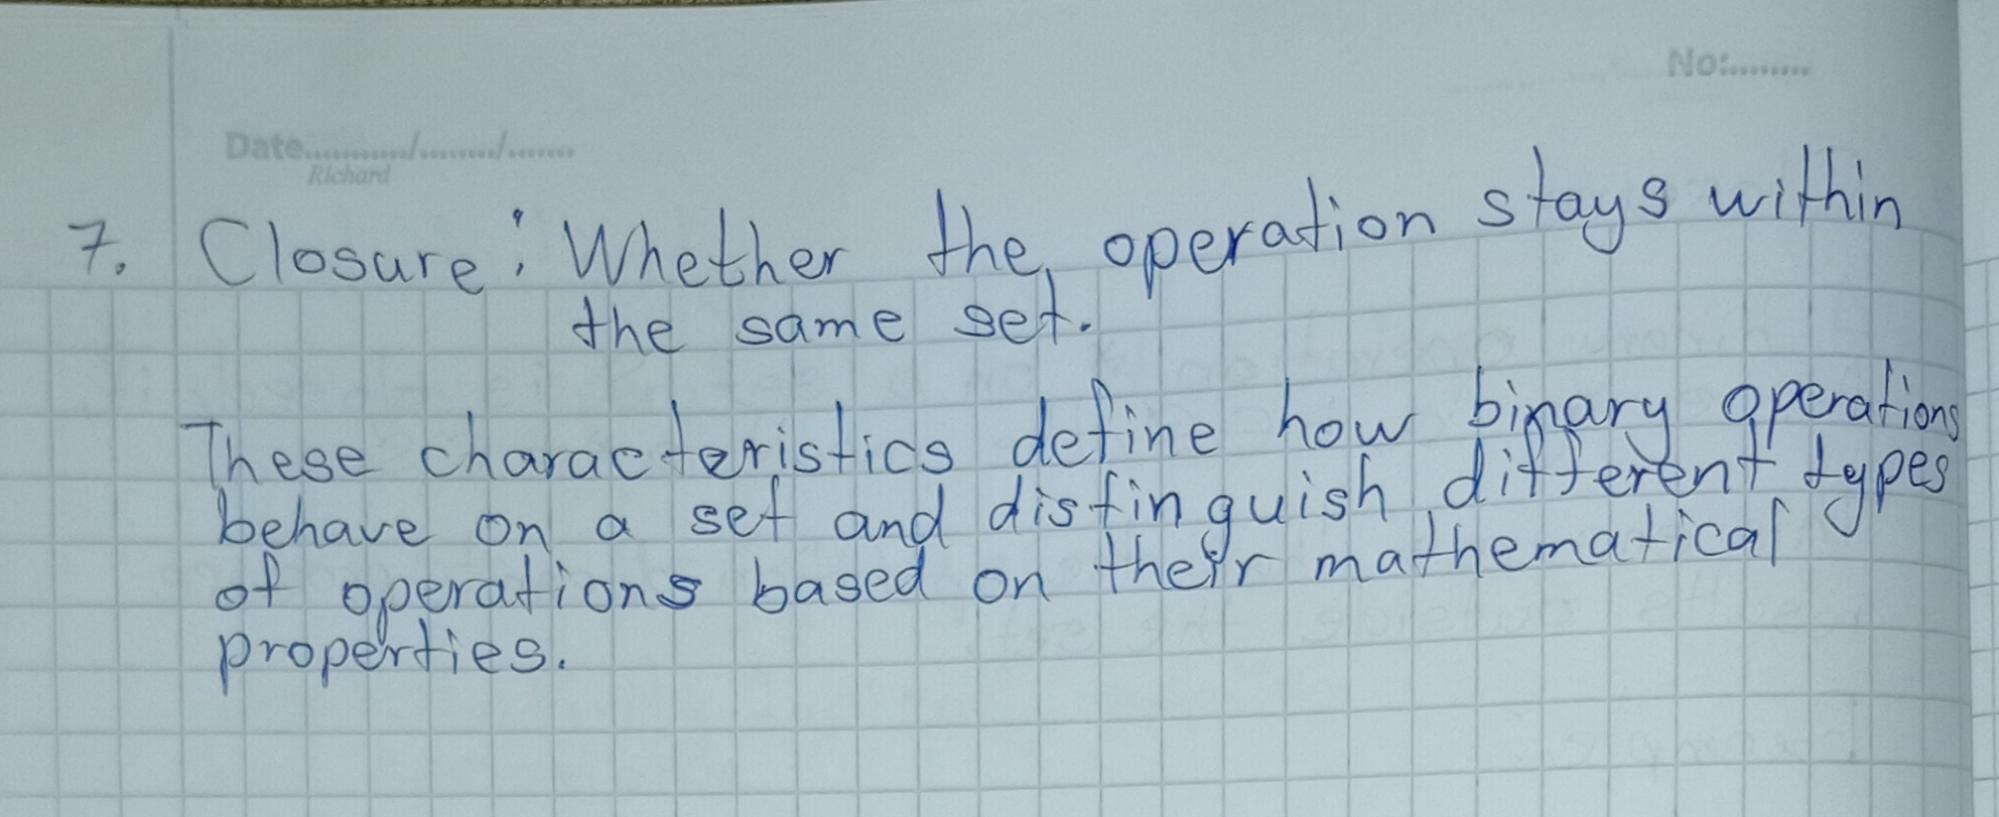 No:.........
Date.........../......../.......
Richard
7. Closure: Whether the operation stays within
the same set.
These characteristics define how binary operations
behave on a set and distinguish different types
of operations based on their mathematical
properties.